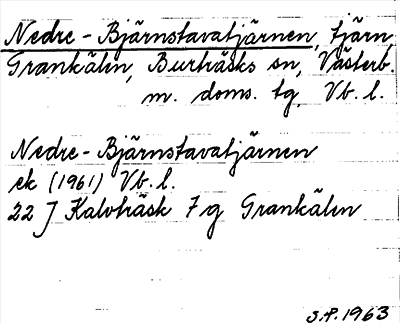 Nedre-Bjärnstavatjärnen, tjärn
Grankälen, Burträsks sn, Västerb.
m. doms. tg, Vb. l.
Nedre-Bjärnstavatjärnen
ek (1961) Vb. l.
22 J Kalvträsk 7 g Grankälen
S.P. 1963